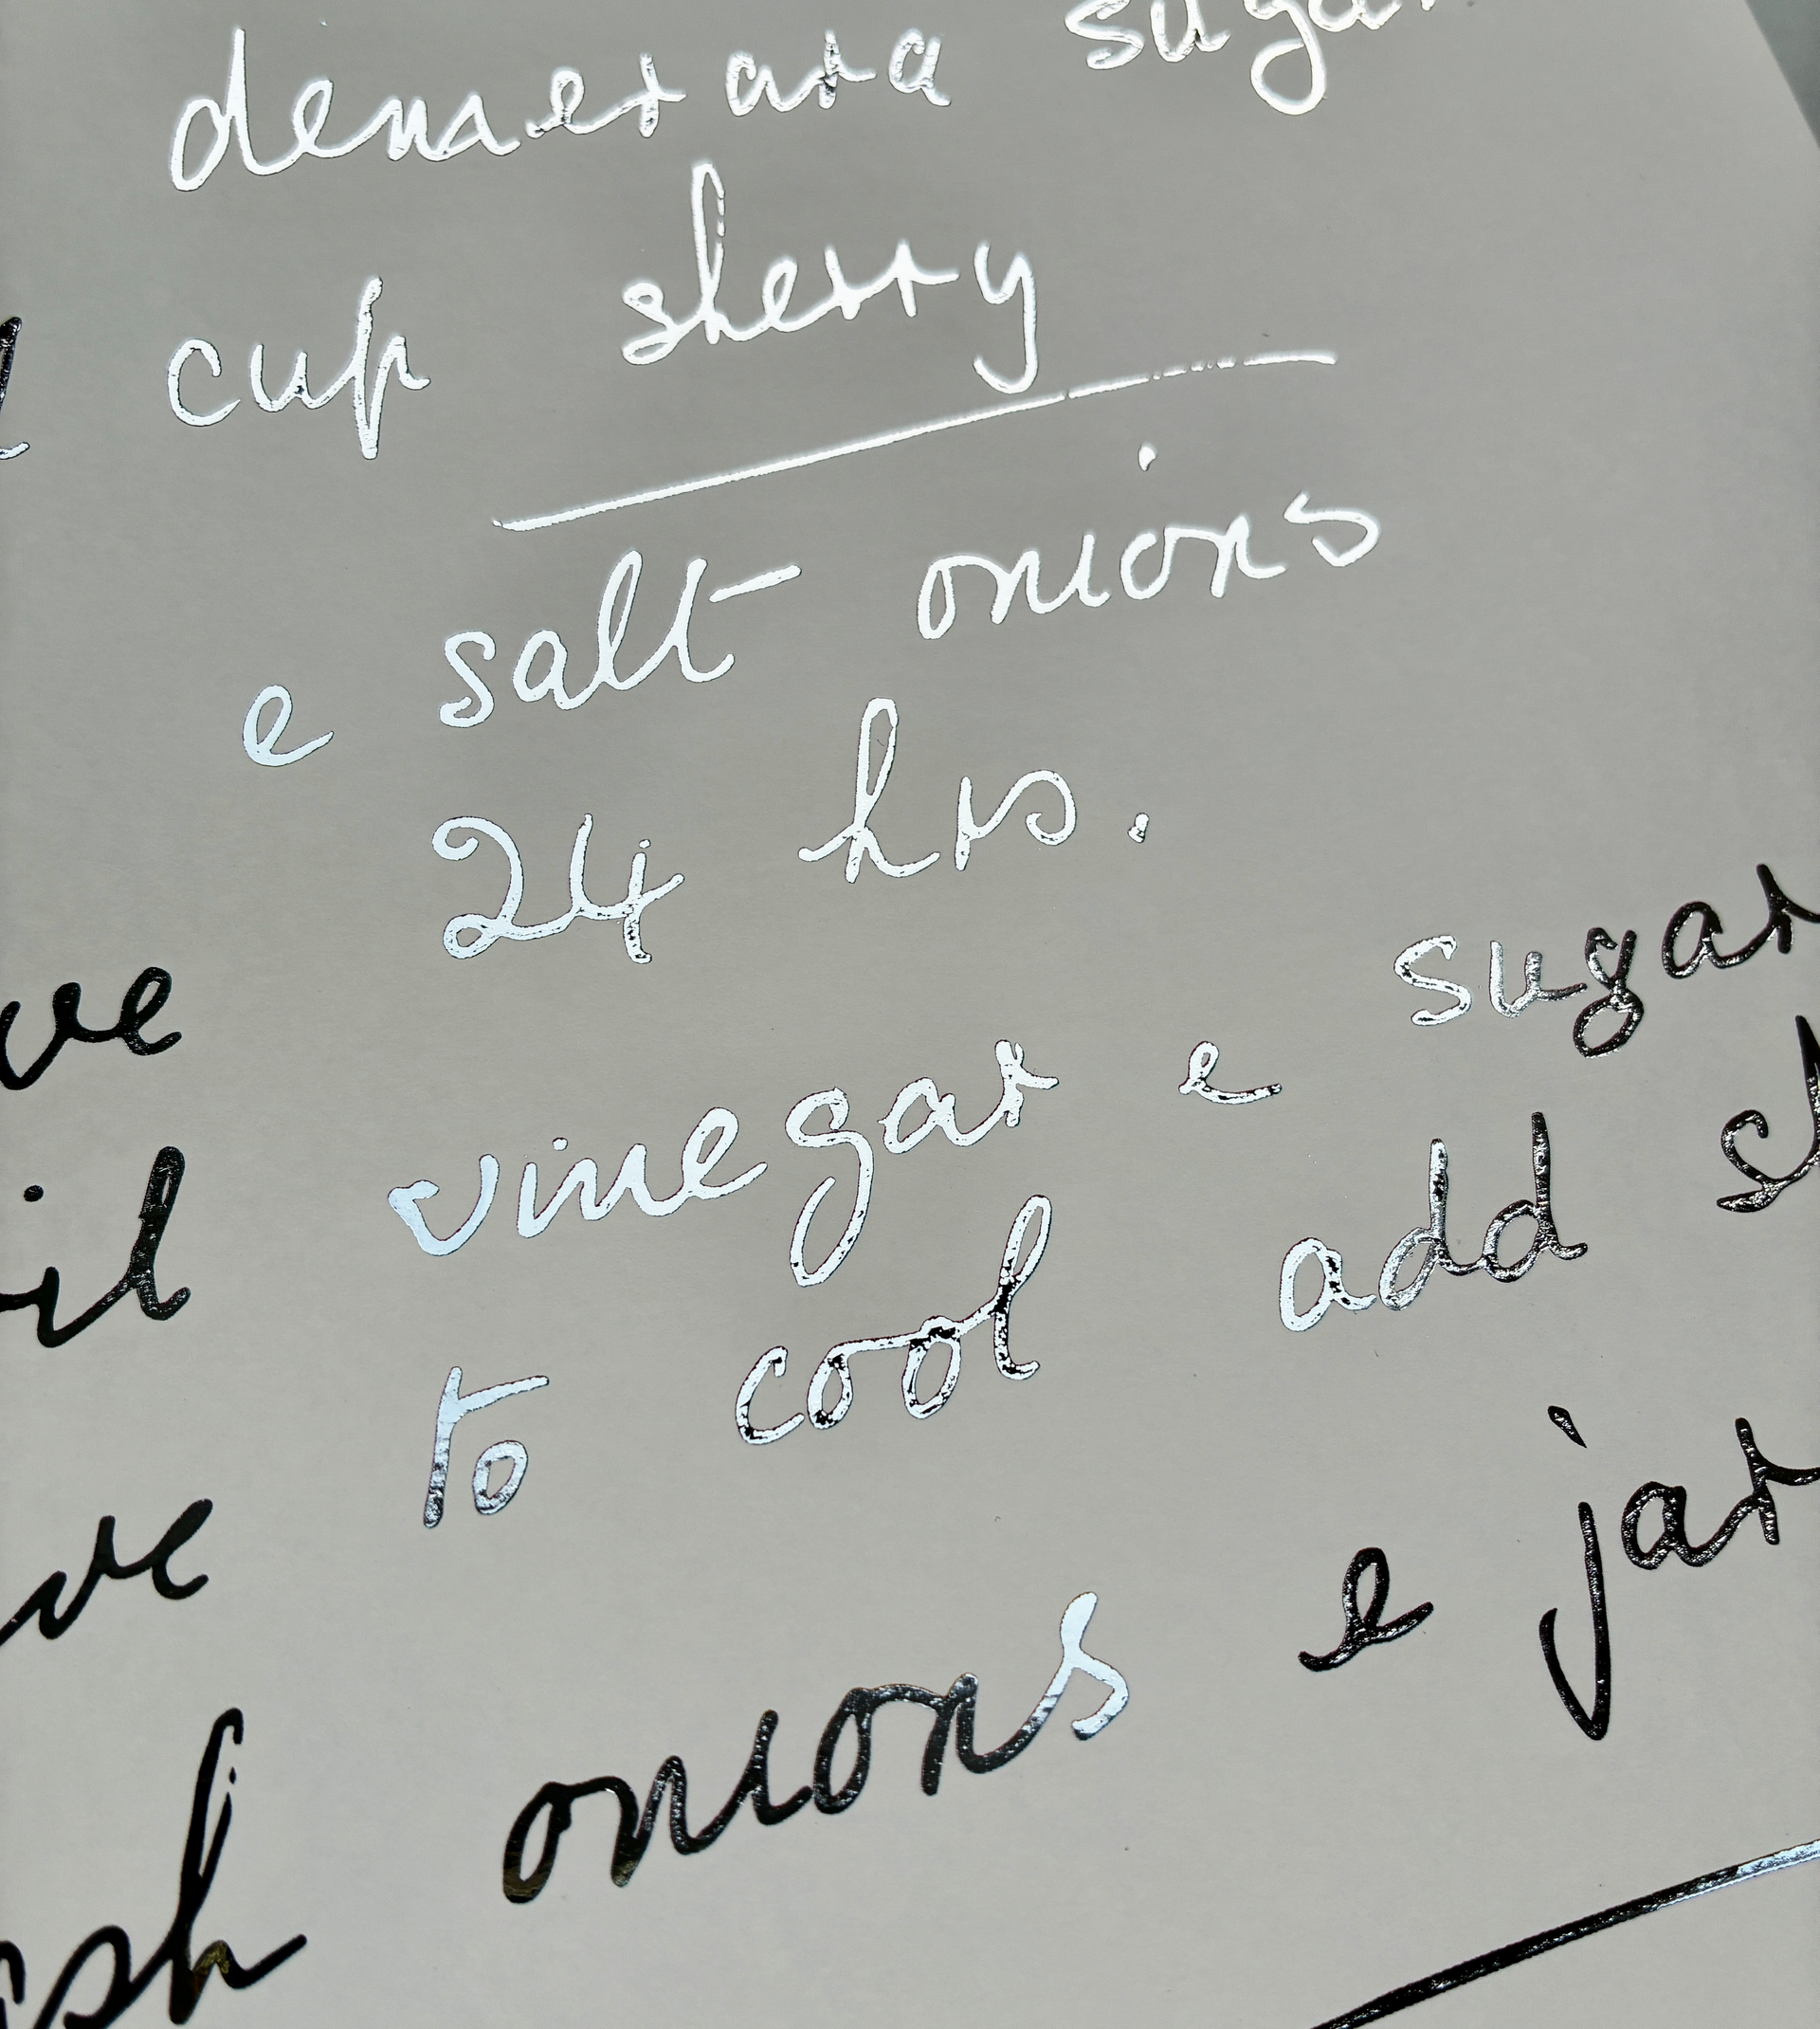 demerara sugar
cup sherry
e salt onions
24 hrs.
vinegar e sugar
to cool add
onions e jar